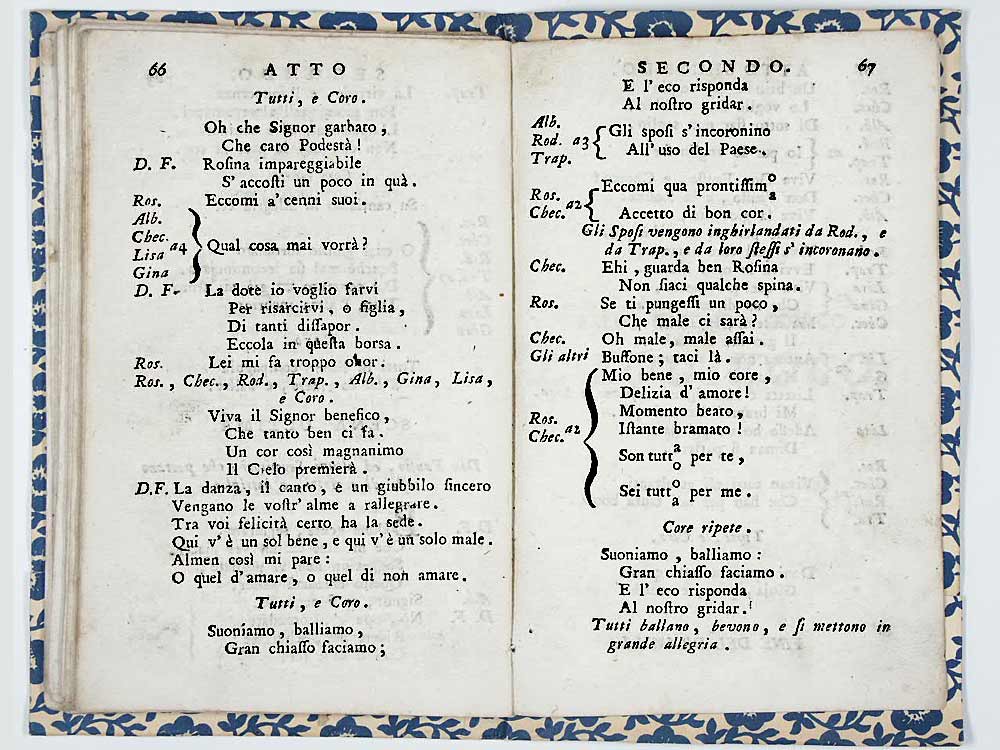 66 ATTO
Tutti, e Coro.
Oh che Signor garbato,
Che caro Podestà!
D. F. Rosina impareggiabile
S' accosti un poco in quà.
Ros. Eccomi a' cenni suoi.
Alb.
Chec.
Lisa
Gina
a4 Qual cosa mai vorrà?
D. F. La dote io voglio farvi
Per risarcirvi, o figlia,
Di tanti dissapor.
Eccola in questa borsa.
Ros. Lei mi fa troppo onor.
Ros., Chec., Rod., Trap., Alb., Gina, Lisa,
e Coro.
Viva il Signor benefico,
Che tanto ben ci fa.
Un cor così magnanimo
Il Cielo premierà.
D.F. La danza, il canto, e un giubbilo sincero
Vengano le vostr' alme a rallegrare.
Tra voi felicità certo ha la sede.
Qui v' è un sol bene, e qui v' è un solo male.
Almen così mi pare:
O quel d' amare, o quel di non amare.
Tutti, e Coro.
Suoniamo, balliamo,
Gran chiasso faciamo;
SECONDO. 67
E l' eco risponda
Al nostro gridar.
Alb.
Rod. a3 Gli sposi s' incoronino
Trap. All' uso del Paese.
Ros. Eccomi qua prontissim o/a
Chec. a2 Accetto di bon cor.
Gli Sposi vengono inghirlandati da Rod., e
da Trap., e da loro stessi s' incoronano.
Chec. Ehi, guarda ben Rosina
Non siaci qualche spina.
Ros. Se ti pungessi un poco,
Che male ci sarà?
Chec. Oh male, male assai.
Gli altri Buffone; taci là.
Mio bene, mio core,
Delizia d' amore!
Momento beato,
Ros.
Chec. a2 Istante bramato!
Son tutt a/o per te,
Sei tutt o/a per me.
Core ripete.
Suoniamo, balliamo:
Gran chiasso faciamo.
E l' eco risponda
Al nostro gridar.
Tutti ballano, bevono, e si mettono in
grande allegria.